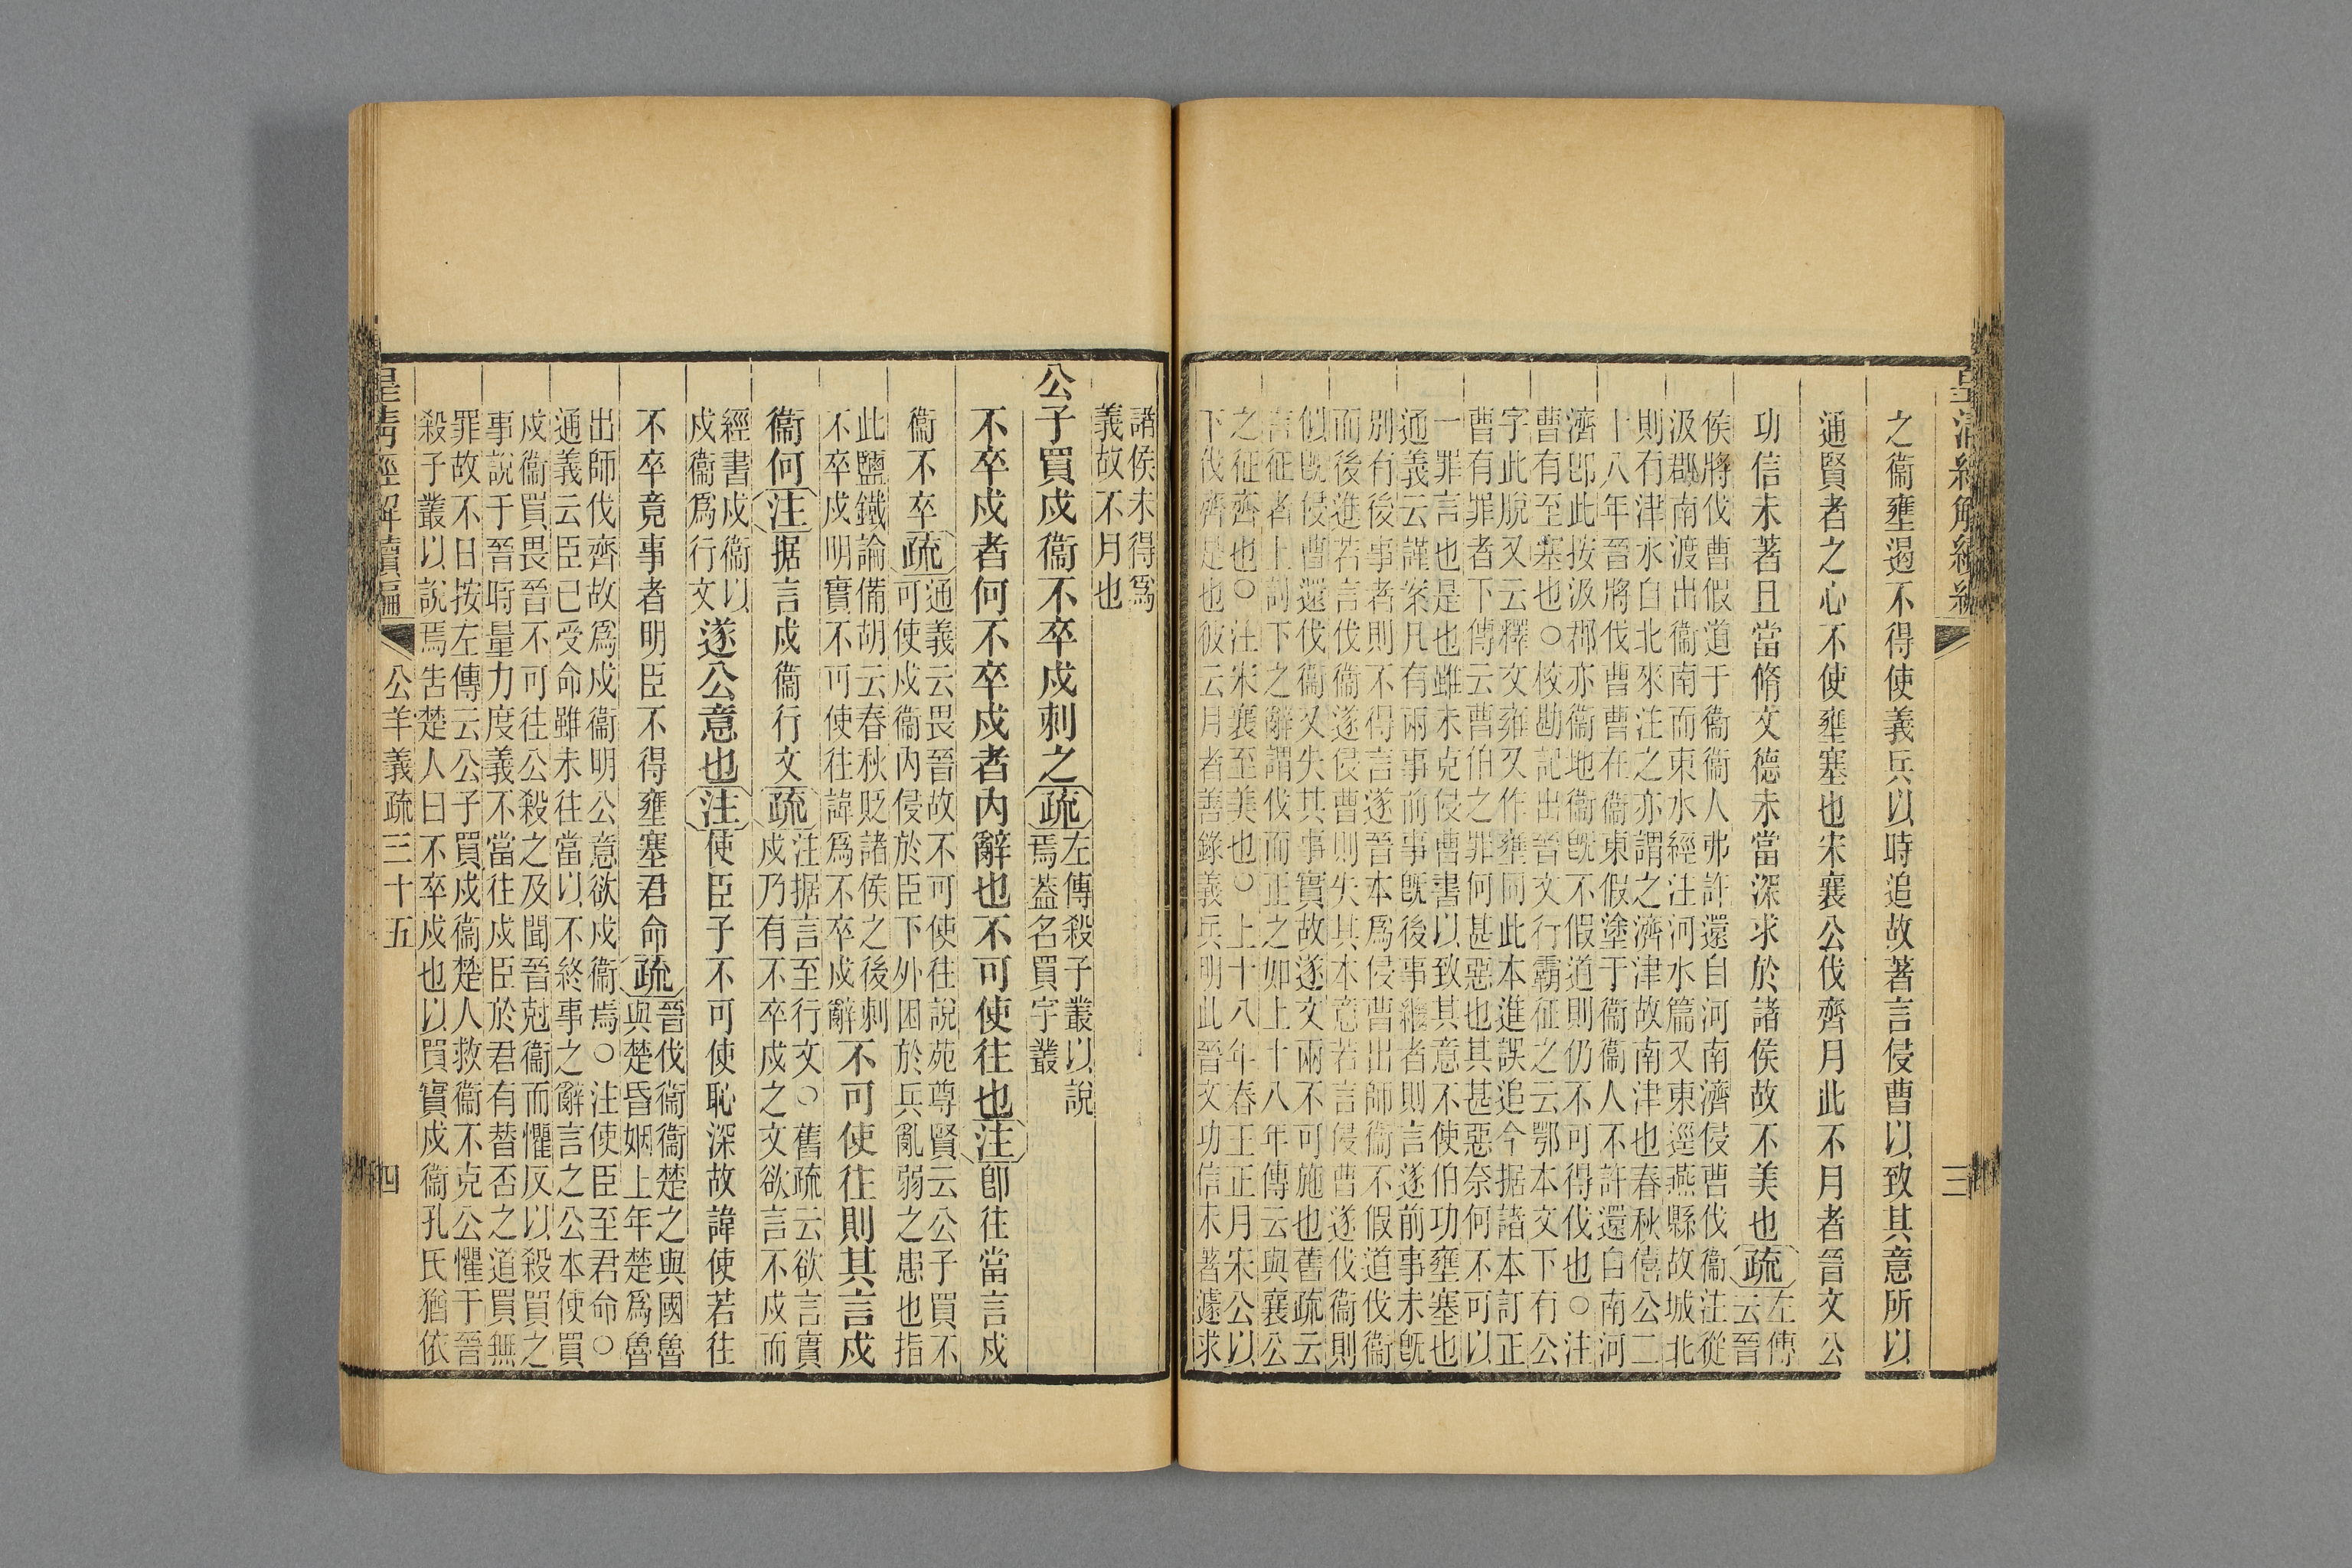 三
之衞壅遏不得使義兵以時追故著言侵曹以致其意所以
通賢者之心不使壅塞也宋襄公伐齊月此不月者晉文公
功信未著且當脩文德未當深求於諸侯故不美也疏左傳
云晉
侯將伐曹假道于衞衞人弗許還自河南濟侵曹伐衞注從
汲郡南渡出衞南而東水經注河水篇又東逕燕縣故城北
則有津水自北來注之亦謂之濟津故南津也春秋僖公二
十八年晉將伐曹曹在衞東假塗于衞衞人不許還自南河
濟卽此按汲郡亦衞地衞旣不假道則仍不可得伐也○注
曹有至塞也○校勘記出晉文行霸征之云鄂本文下有公
字此脫又云釋文雍又作壅同此本進誤追今据諸本訂正
曹有罪者下傳云曹伯之罪何甚惡也其甚惡奈何不可以
一罪言也是也雖未克侵曹書以致其意不使伯功壅塞也
通義云謹案凡有兩事前事旣後事繼者則言遂前事未旣
別有後事者則不得言遂晉本爲侵曹出師衞不假道伐衞
而後進若言伐衞遂侵曹則失其本意若言侵曹遂伐衞則
似旣侵曹還伐衞又失其事實故遂文兩不可施也舊疏云
言征者上討下之辭謂伐而正之如上十八年傳云與襄公
之征齊也○注宋襄至美也○上十八年春王正月宋公以
下伐齊是也彼云月者善錄義兵明此晉文功信未著遽求
諸侯未得爲
義故不月也
公子買戍衞不卒戍刺之疏左傳殺子叢以說
焉蓋名買字叢
不卒戍者何不卒戍者內辭也不可使往也注卽往當言戍
衞不卒疏通義云畏晉故不可使往說苑尊賢云公子買不
可使戍衞內侵於臣下外困於兵亂弱之患也指
此鹽鐵論備胡云春秋貶諸侯之後刺
不卒戍明實不可使往諱爲不卒戍辭不可使往則其言戍
衞何注据言戍衞行文疏注据言至行文○舊疏云欲言實
戍乃有不卒戍之文欲言不戍而
經書戍衞以
戍衞爲行文遂公意也注使臣子不可使恥深故諱使若往
不卒竟事者明臣不得壅塞君命疏晉伐衞衞楚之與國魯
與楚昏姻上年楚爲魯
出師伐齊故爲戍衞明公意欲戍衞焉○注使臣至君命○
通義云臣已受命雖未往當以不終事之辭言之公本使買
戍衞買畏晉不可往公殺之及聞晉尅衞而懼反以殺買之
事說于晉時量力度義不當往戍臣於君有替否之道買無
罪故不日按左傳云公子買戍衞楚人救衞不克公懼于晉
殺子叢以說焉吿楚人曰不卒戍也以買實戍衞孔氏猶依
皇淸經解續編 公羊義疏三十五 四